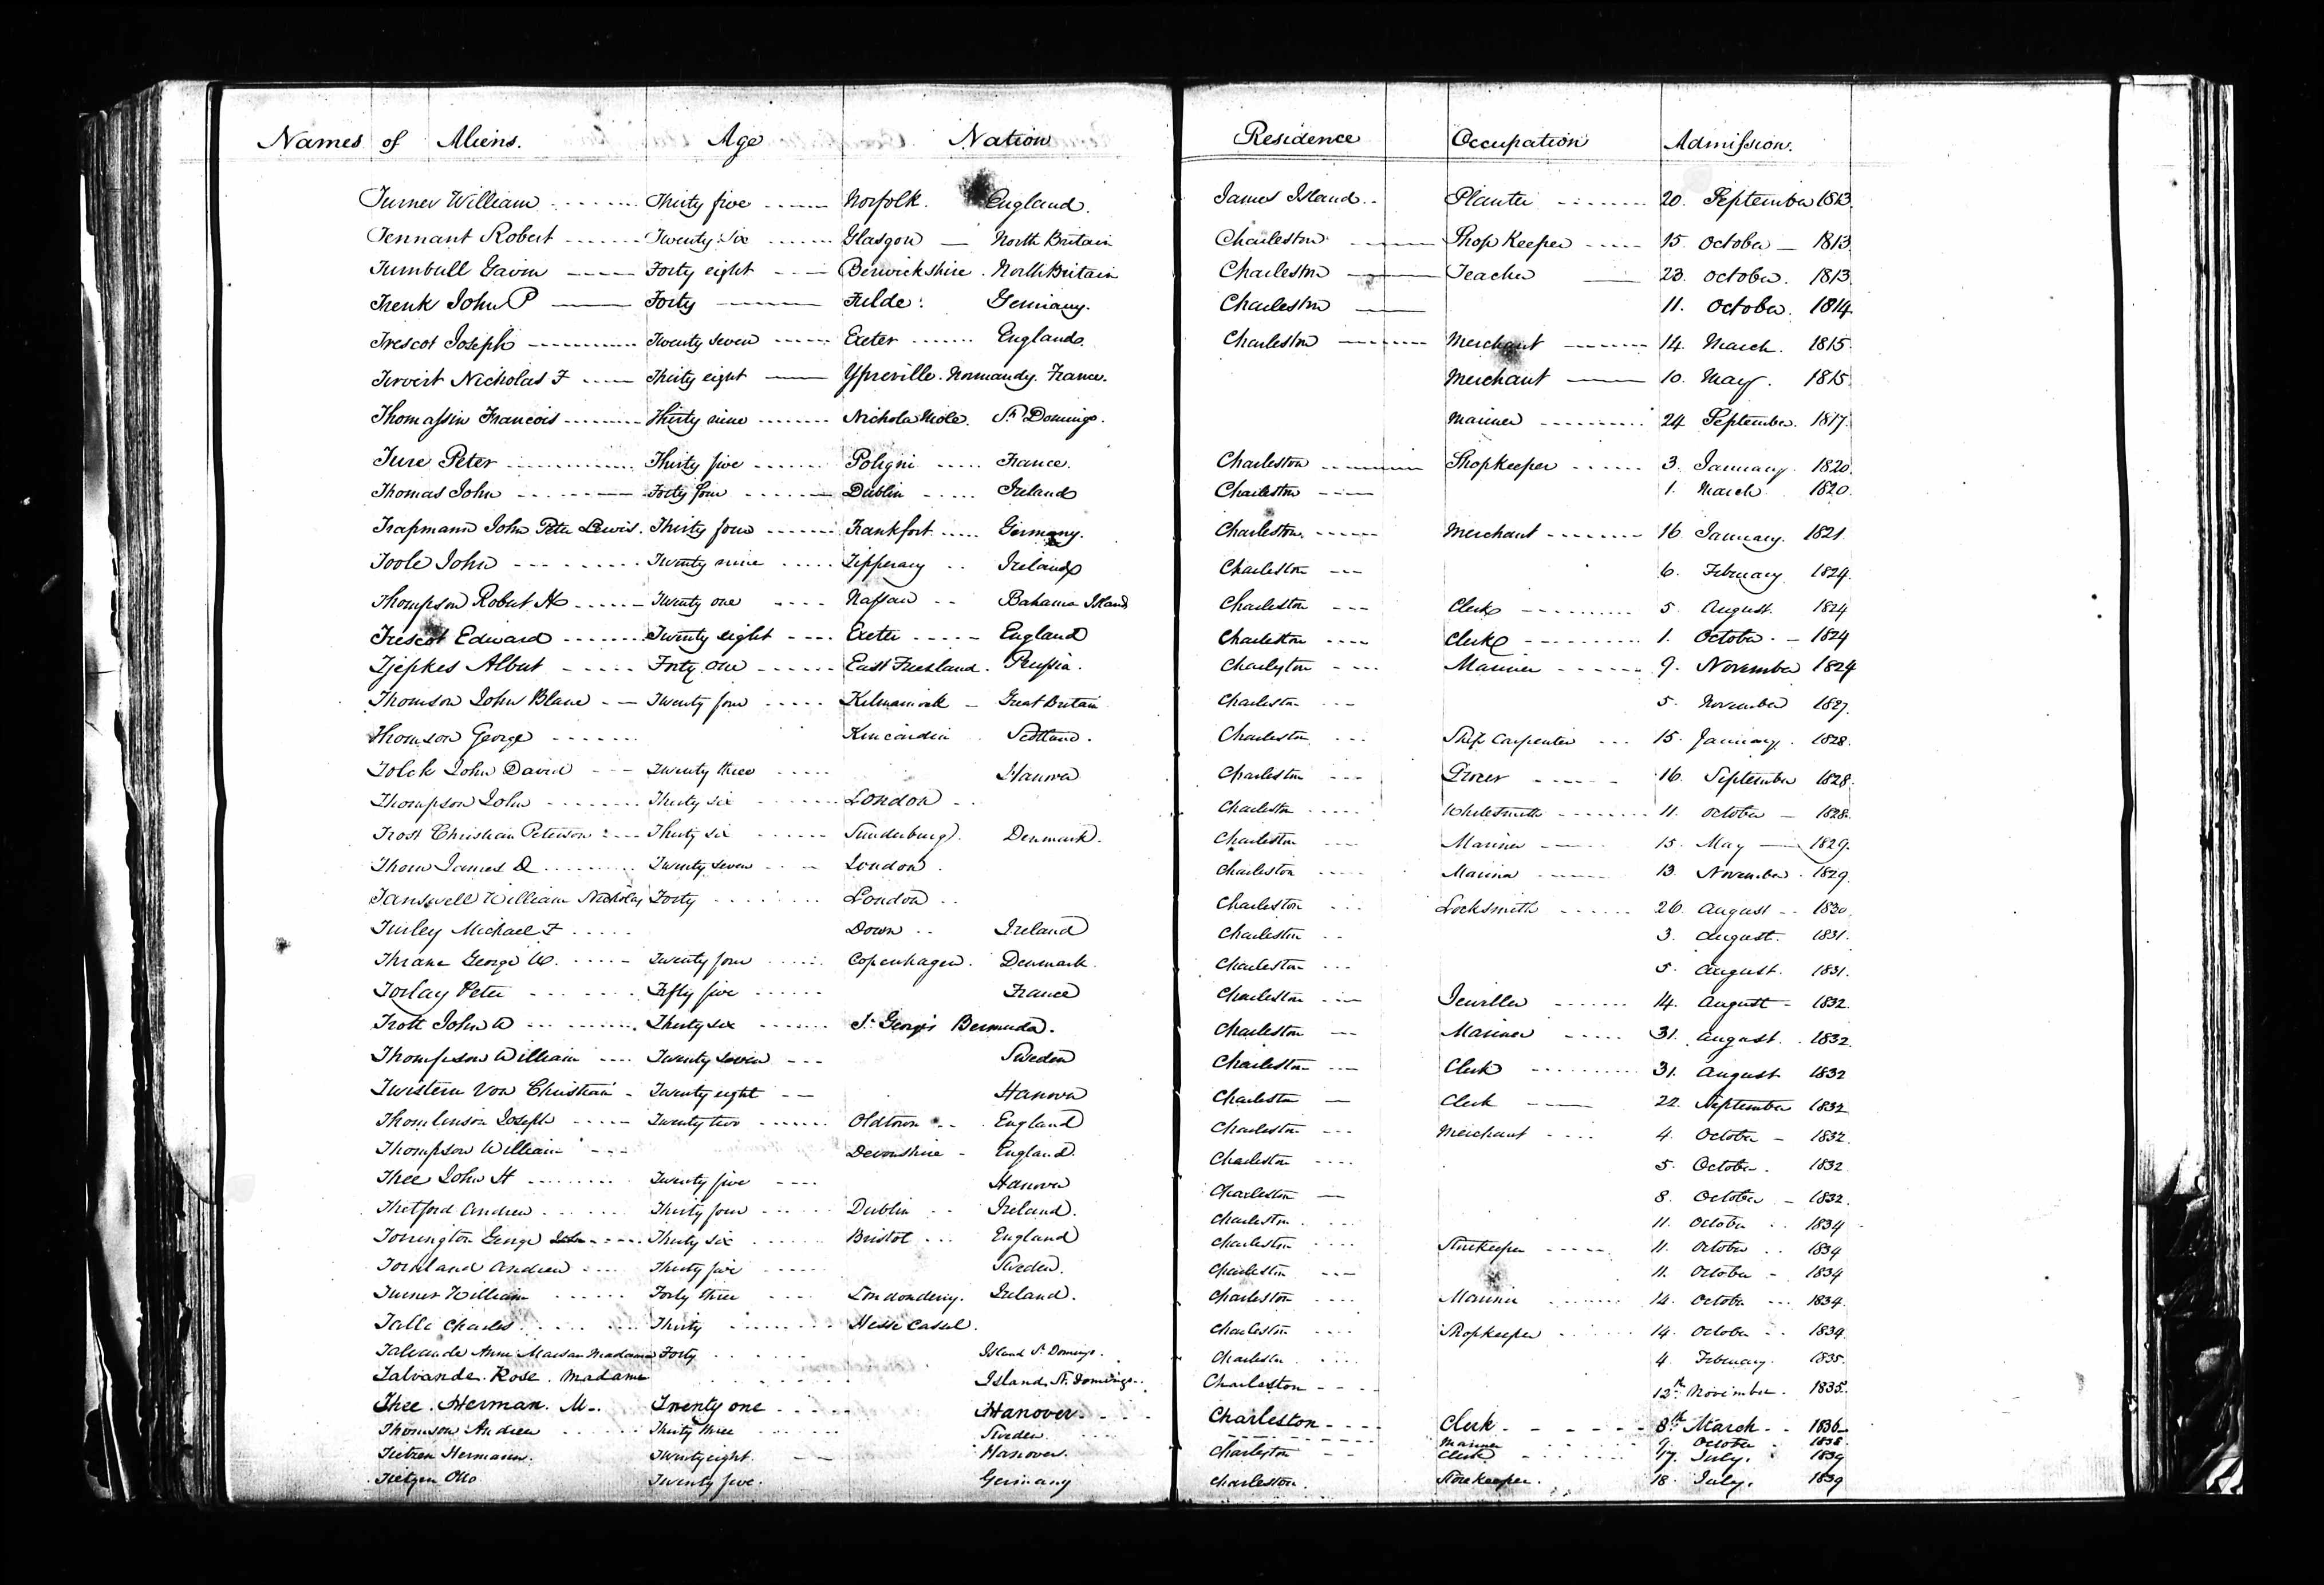 Names of Aliens. Age Nation Residence Occupation Admission.
Turner William Thirty five Norfolk. England. James Island Planter 20. September 1813.
Tennant Robert Twenty Six Glasgow North Britain Charleston Shop Keeper 15. October 1813
Turnbull Gavin Forty eight Berwickshire. North Britain Charleston Teacher 23. October. 1813.
Trenk John P Forty Fulde. Germany. Charleston 11. October. 1814.
Trescot Joseph Twenty seven Exeter England Charleston Merchant 14. March. 1815.
Nicholas F Thirty eight Ypreville. Normandy. France. Merchant 10. May. 1815.
Thomassin Francois Thirty nine Nichola Mole. St. Domingo. Mariner 24 September. 1817.
Ture Peter Thirty five Poligni France. Charleston Shopkeeper 3. January. 1820.
Thomas John Forty four Dublin Ireland Charleston 1. March. 1820.
Trapmann John Peter Lewis. Thirty four Frankfort Germany. Charleston Merchant 16 January. 1821.
Toole John Twenty nine Tipperary Ireland Charleston 6. February. 1824.
Thompson Robert H Twenty one Nassau Bahama Island Charleston Clerk 5. August. 1824
Trescot Edward Twenty eight Exeter England Charleston Clerk 1. October. 1824
Tjepkes Albert Forty One East Friesland. Prussia. Charleston Mariner 9. November 1824
Thomson John Blane Twenty four Kilmarnock Great Britain Charleston 5. November 1827.
Thomson George Kincardin Scotland. Charleston Ship Carpenter 15. January. 1828.
Tolck John David Twenty three Hanover Charleston Grocer 16. September 1828.
Thompson John Thirty six London Charleston Whitesmith 11. October 1828.
Trost Christian Peterson Thirty six Sunderburg. Denmark. Charleston Mariner 15. May 1829.
Thom James D Twenty seven London. Charleston Mariner 13. November. 1829.
Tanswell William Nicholas Forty London Charleston Locksmith 26. August 1830.
Turley Michael F Down Ireland Charleston 3. August. 1831.
Thrane George W. Twenty four Copenhagen. Denmark. Charleston 5. August. 1831.
Torlay Peter Fifty five France Charleston Jeweller 14. August 1832.
Trott John W Thirty six St. George's Bermuda. Charleston Mariner 31. August. 1832.
Thompson William Twenty seven Sweden Charleston Clerk 31. August 1832
Twistern Von Christian Twenty eight Hanover Charleston Clerk 22. September 1832
Thomlinson Joseph Twenty two Oldtown England Charleston Merchant 4. October 1832.
Thompson William Devonshire England. Charleston 5. October. 1832
Thee John H Twenty five Hanover Charleston 8. October 1832.
Thetford Andrew Thirty four Dublin Ireland. Charleston 11. October 1834
Torrington George John Thirty six Bristol England Charleston Storekeeper 11. October 1834
Tornland Andrew Thirty five Sweden. Charleston 11. October 1834
Turner William Forty three Londonderry. Ireland. Charleston Mariner 14. October 1834.
Talle Charles. Thirty Hesse Cassel. Charleston Shopkeeper 14. October 1834.
Talvande Anne Marsan Madame Forty Island St. Domingo. Charleston 4. February. 1835.
Talvande. Rose. Madame Island St. Domingo. Charleston 12th November. 1835.
Thee. Herman. M. Twenty one Hanover Charleston Clerk 8th March 1836
Thomson Andrew Thirty three Sweden. Mariner 9. October 1838.
Tietzen Hermann. Twenty eight. Hanover. Charleston Clerk 17. July. 1839
Tietzen Otto Twenty five. Germany Charleston. Storekeeper. 18. July. 1839